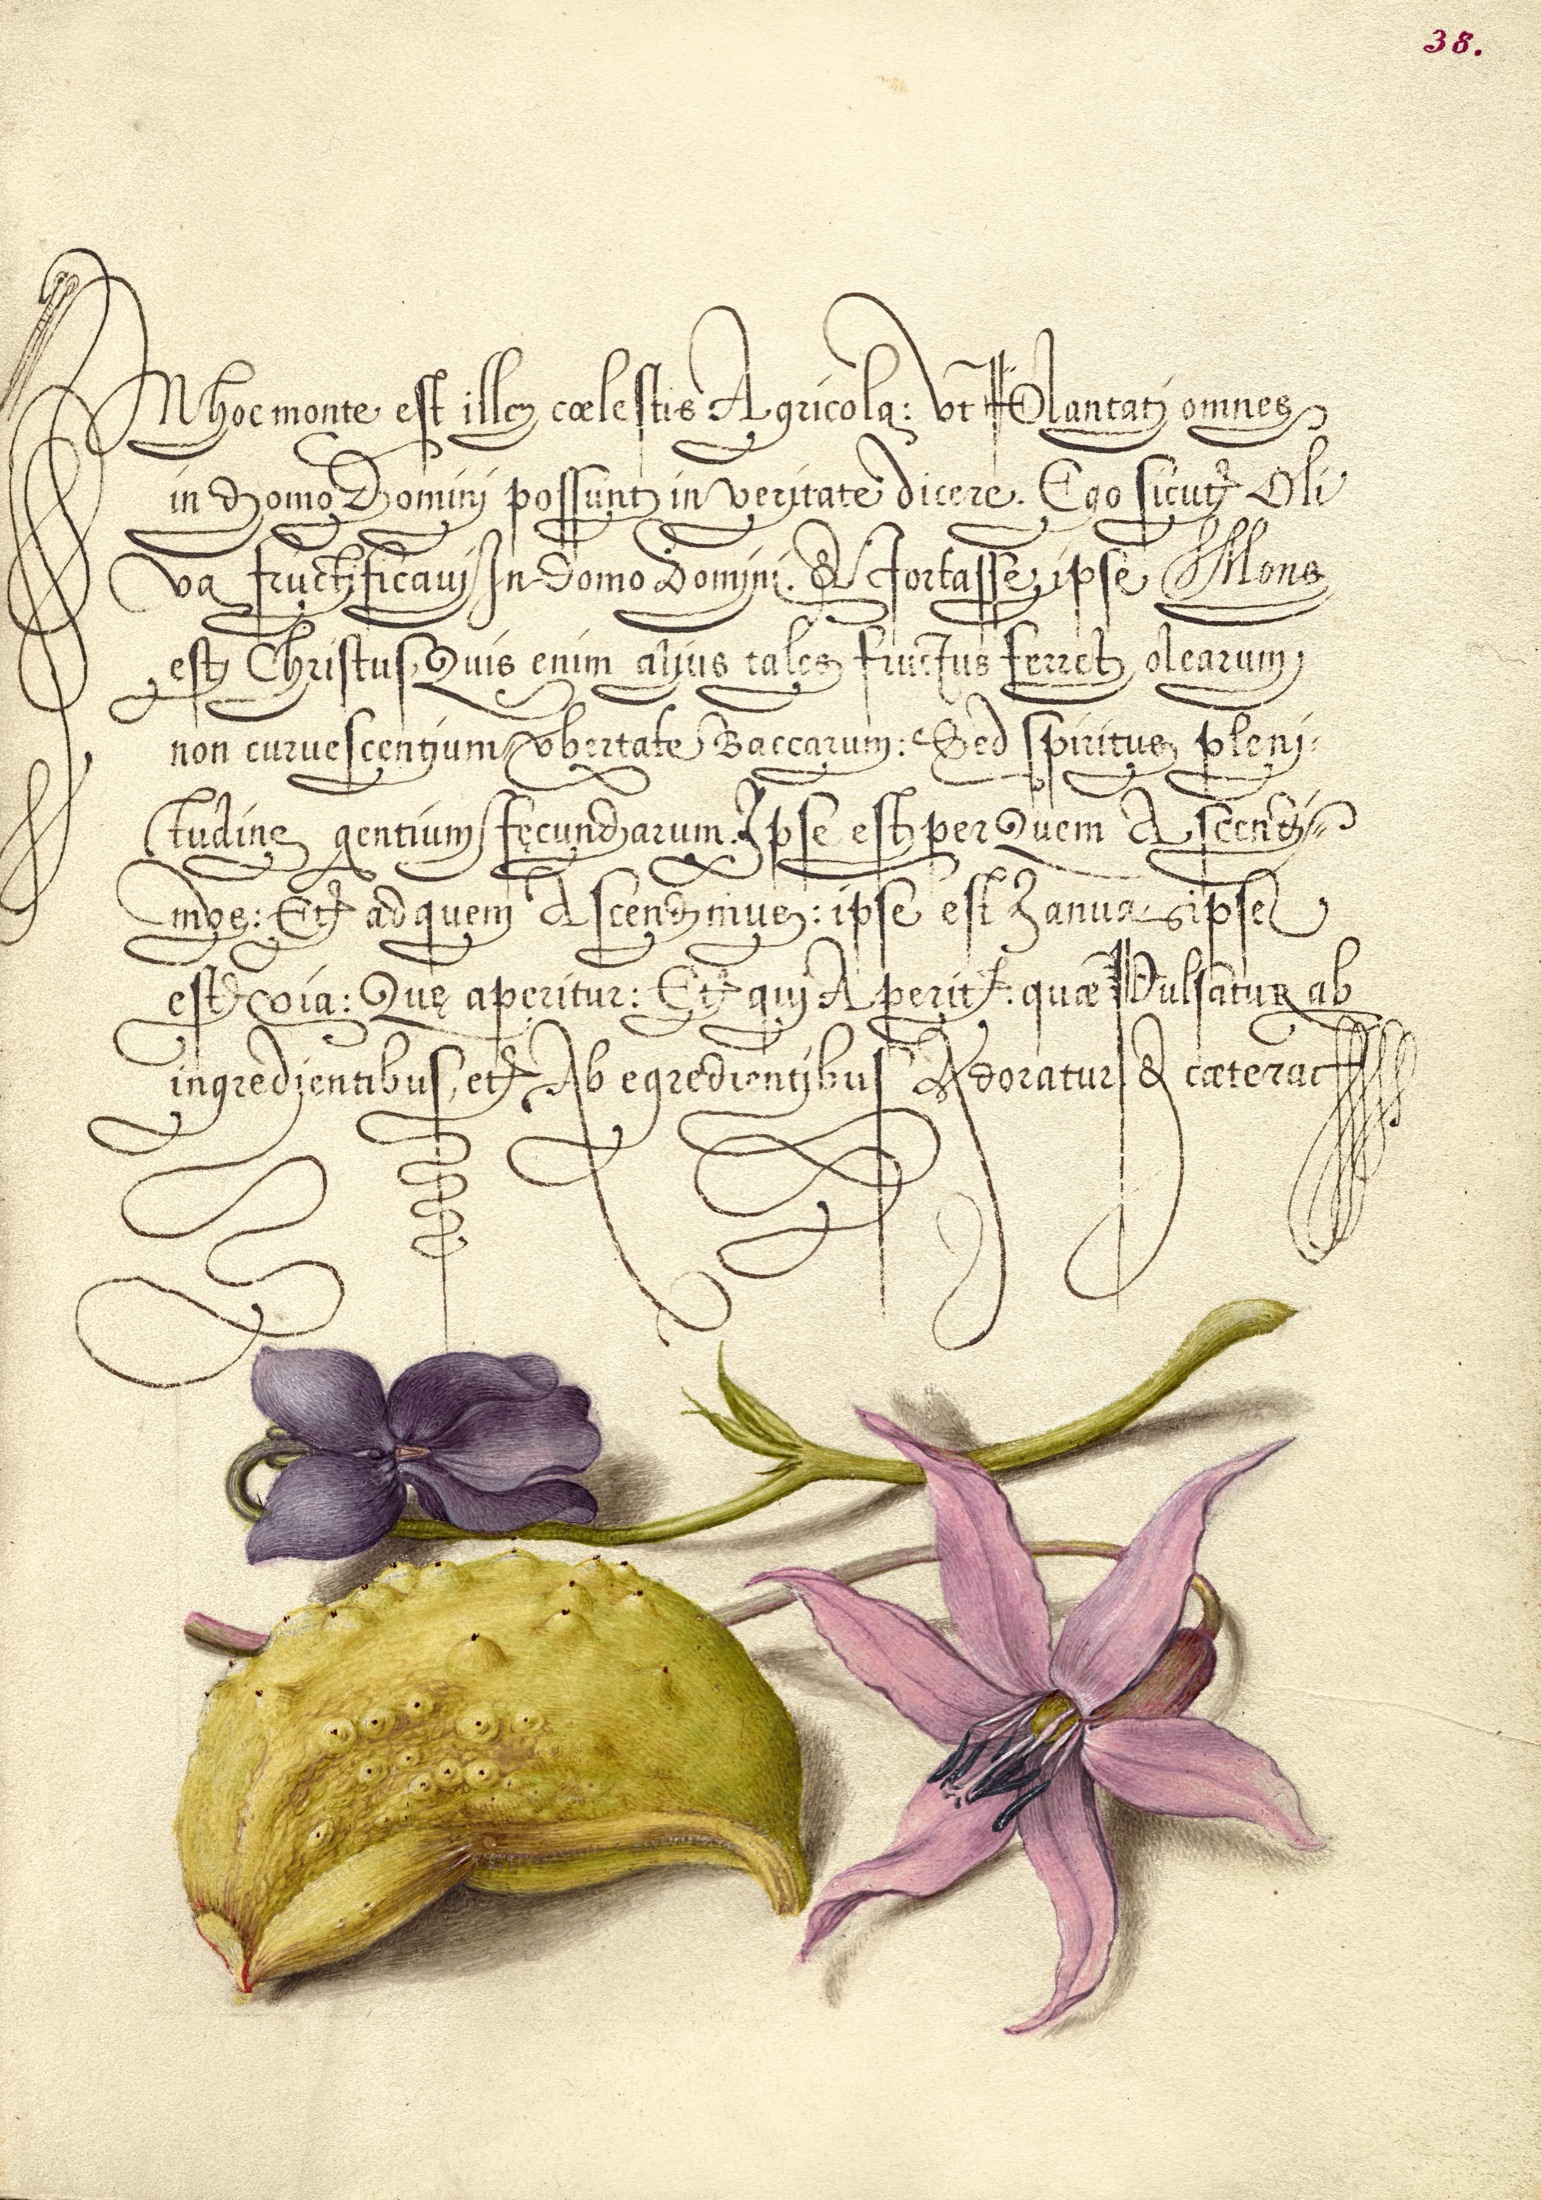 38.
IN hoc monte est ille cœlestis Agricola: vt Plantati omnes
in domo Domini possunt in veritate dicere. Ego sicut Oli
va fructificavi In domo Domini. & fortasse ipse Mons
est Christus Quis enim alius tales fructus ferret olearum,
non curuescentium vbertate Baccarum: Sed spiritus pleni-
tudine gentium fęcundarum. Ipse est per Quem Ascendi-
mus: Et ad quem Ascendimus: ipse est Ianua ipse
est via: Quę aperitur: Et qui Aperit: quæ Pulsatur ab
ingredientibus, et Ab egredientibus Adoratur & cæterac